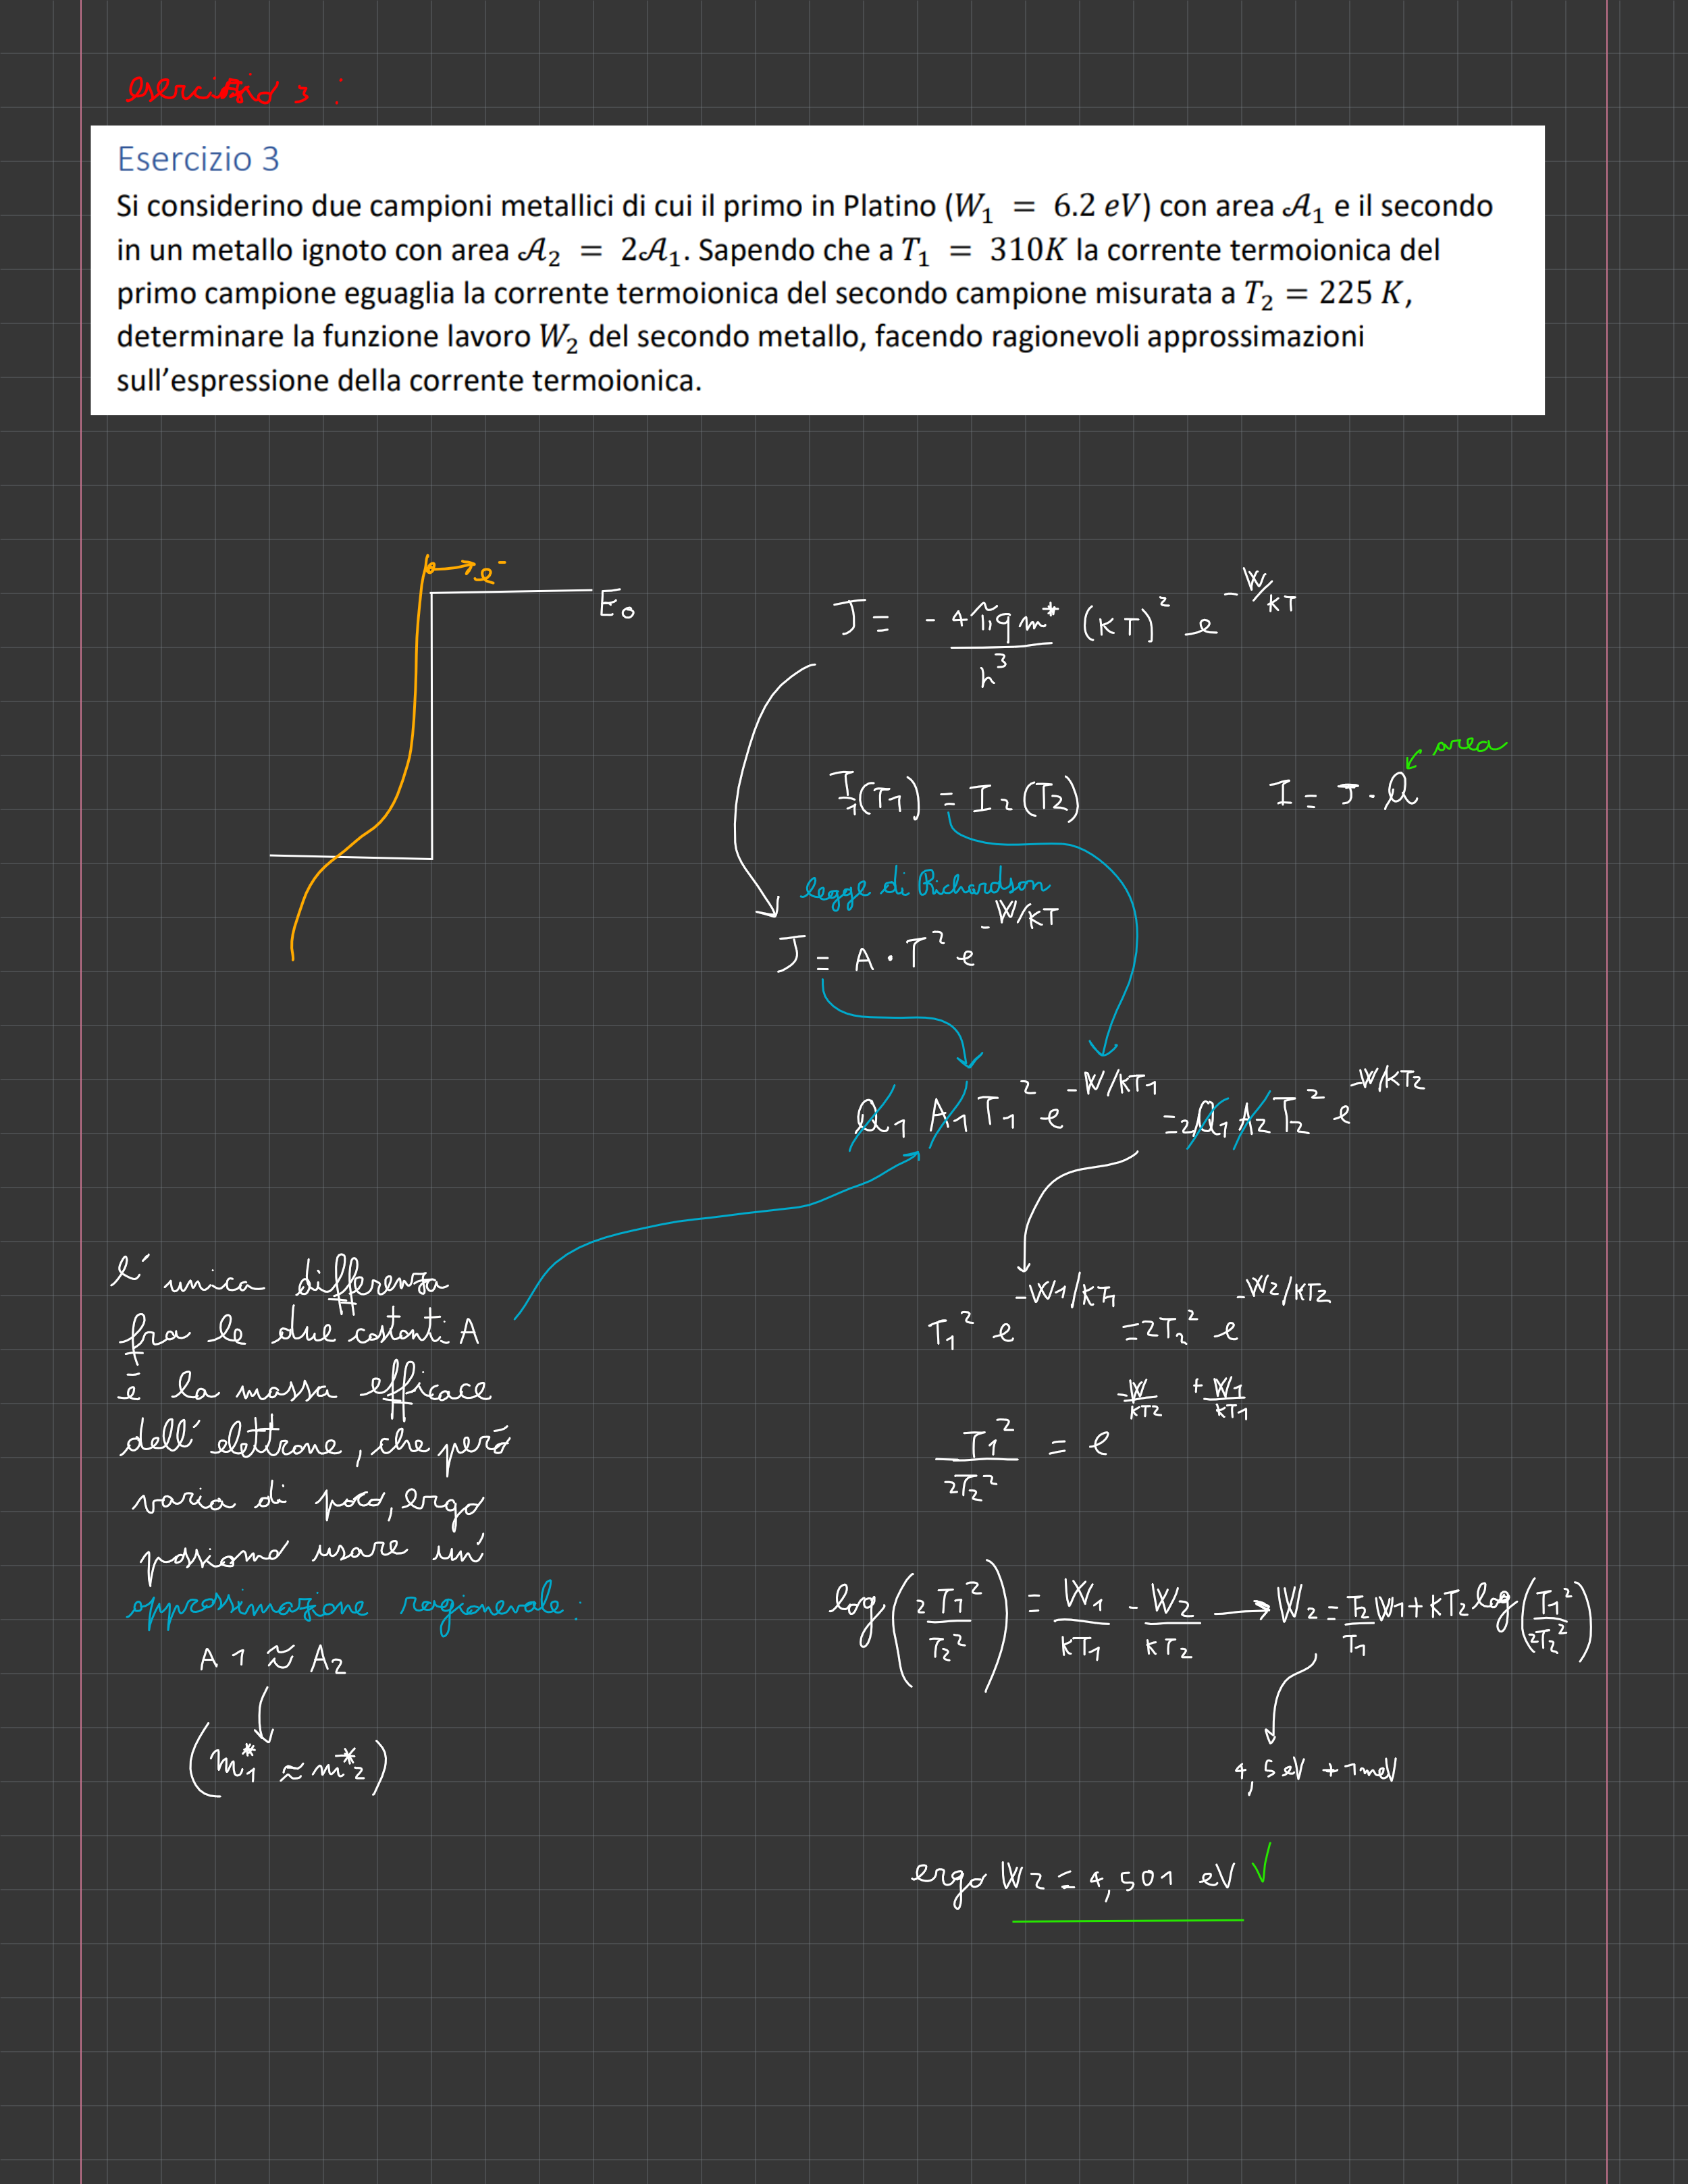 esercizio 3 :
Esercizio 3
Si considerino due campioni metallici di cui il primo in Platino (W₁ = 6.2 eV) con area 𝒜₁ e il secondo
in un metallo ignoto con area 𝒜₂ = 2𝒜₁. Sapendo che a T₁ = 310K la corrente termoionica del
primo campione eguaglia la corrente termoionica del secondo campione misurata a T₂ = 225 K,
determinare la funzione lavoro W₂ del secondo metallo, facendo ragionevoli approssimazioni
sull'espressione della corrente termoionica.
e⁻
E₀
J = - 4πqm*/h³ (KT)² e^(-W/KT)
area
I₁(T₁) = I₂(T₂)
I = J · 𝒜
legge di Richardson
J = A · T² e^(-W/KT)
𝒜₁ A₁ T₁² e^(-W/KT₁) = 2𝒜₁ A₂ T₂² e^(-W/KT₂)
l'unica differenza
fra le due costanti A
è la massa efficace
dell'elettrone, che però
varia di poco, ergo
possiamo usare un'
approssimazione ragionevole:
A1 ≈ A₂
(m*₁ ≈ m*₂)
T₁² e^(-W1/KT₁) = 2T₂² e^(-W2/KT2)
T₁²/2T₂² = e^(-W/KT2 + W1/KT1)
log(2T₁²/T₂²) = W₁/KT₁ - W₂/KT₂ → W₂ = T₂/T₁ W₁ + KT₂ log(T₁²/2T₂²)
4,5 eV + 1meV
ergo W2 = 4,501 eV ✓